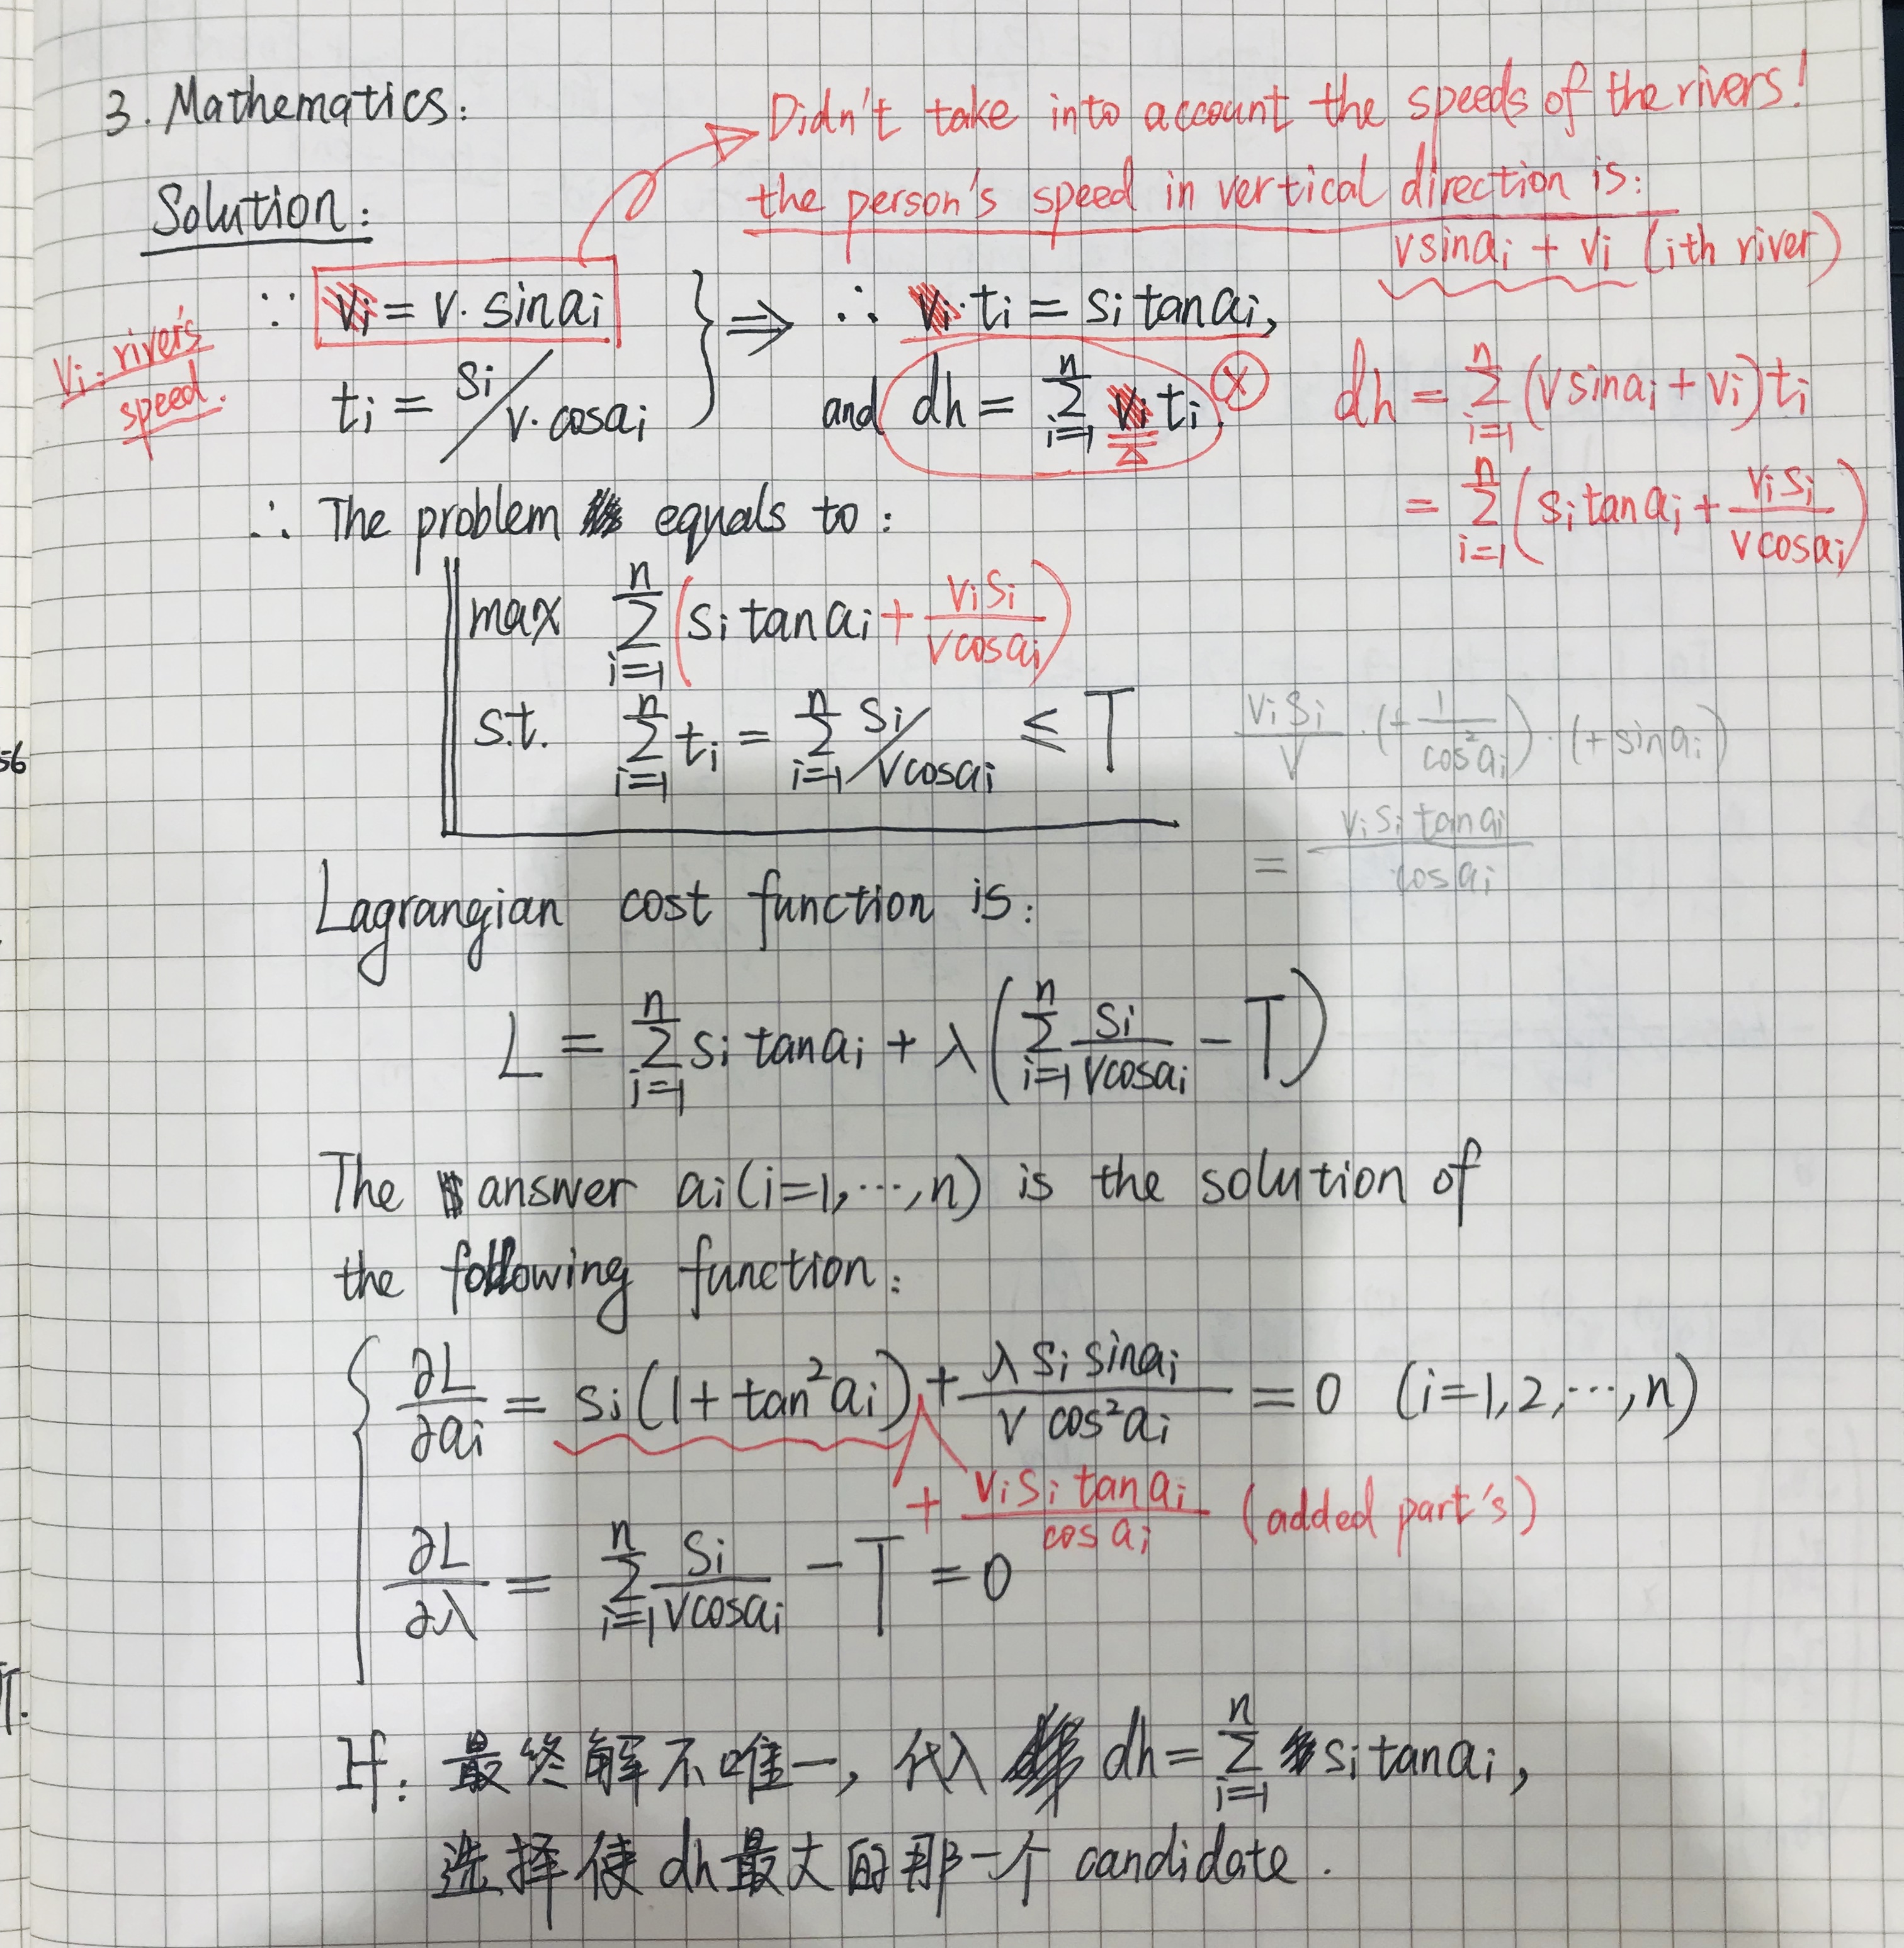 3. Mathematics:
Didn't take into account the speeds of the rivers!
the person's speed in vertical direction is:
v sin aᵢ + vᵢ (ith river)
Solution:
∵ vᵢ = v · sin aᵢ
tᵢ = sᵢ / v · cos aᵢ
} ⇒ ∴ vᵢ · tᵢ = sᵢ tan aᵢ,
and dh = ∑ᵢ₌₁ⁿ vᵢ tᵢ. ⓧ
vᵢ: river's
speed.
dh = ∑ᵢ₌₁ⁿ (v sin aᵢ + vᵢ) tᵢ
= ∑ᵢ₌₁ⁿ (sᵢ tan aᵢ + vᵢ sᵢ / v cos aᵢ)
∴ The problem equals to:
max ∑ᵢ₌₁ⁿ (sᵢ tan aᵢ + vᵢ sᵢ / v cos aᵢ)
s.t. ∑ᵢ₌₁ⁿ tᵢ = ∑ᵢ₌₁ⁿ sᵢ / v cos aᵢ ≤ T
vᵢ sᵢ / v · (+ 1 / cos² aᵢ) · (+ sin aᵢ)
= vᵢ sᵢ tan aᵢ / cos aᵢ
Lagrangian cost function is:
L = ∑ᵢ₌₁ⁿ sᵢ tan aᵢ + λ (∑ᵢ₌₁ⁿ sᵢ / v cos aᵢ − T)
The answer aᵢ (i=1, ⋯, n) is the solution of
the following function:
∂L/∂aᵢ = sᵢ (1 + tan² aᵢ) + λ sᵢ sin aᵢ / v cos² aᵢ = 0 (i=1,2,⋯,n)
+ vᵢ sᵢ tan aᵢ / cos aᵢ (added part's)
∂L/∂λ = ∑ᵢ₌₁ⁿ sᵢ / v cos aᵢ − T = 0
If: 最终解不唯一, 代入 dh = ∑ᵢ₌₁ⁿ sᵢ tan aᵢ,
选择使 dh 最大的那一个 candidate.
56
T.